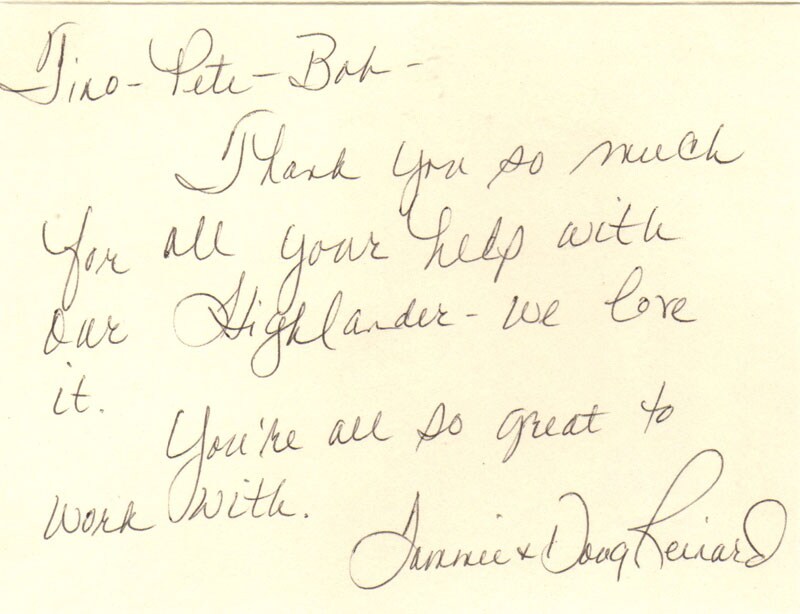 Tino - Pete - Bob -
Thank you so much
for all your help with
our Highlander - we love
it.
You're all so great to
work with.
Tammie & Doug Reinard